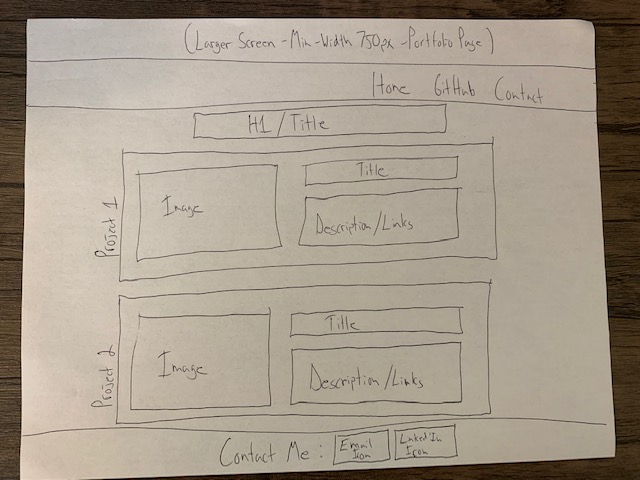 (Larger Screen - Min-Width 750px - Portfolio Page)
Home GitHub Contact
H1 / Title
Project 1
Image
Title
Description/Links
Project 2
Image
Title
Description/Links
Contact Me :
Email
Icon
LinkedIn
Icon